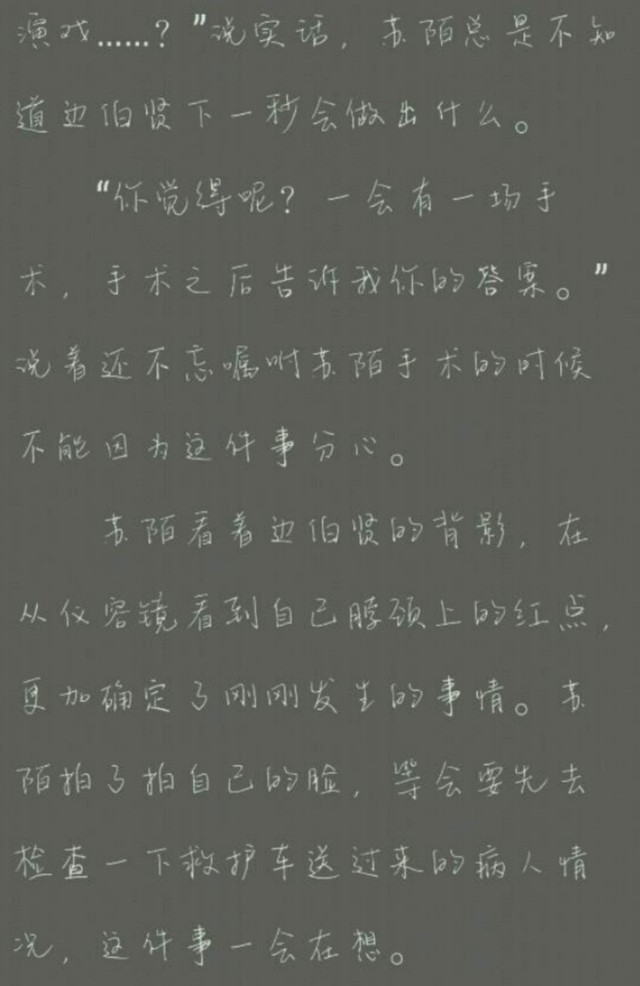 演戏……？”说实话，苏陌总是不知
道边伯贤下一秒会做出什么。
“你觉得呢？一会有一场手
术，手术之后告诉我你的答案。”
说着还不忘嘱咐苏陌手术的时候
不能因为这件事分心。
苏陌看着边伯贤的背影，在
从仪容镜看到自己脖颈上的红点，
更加确定了刚刚发生的事情。苏
陌拍了拍自己的脸，等会要先去
检查一下救护车送过来的病人情
况，这件事一会在想。